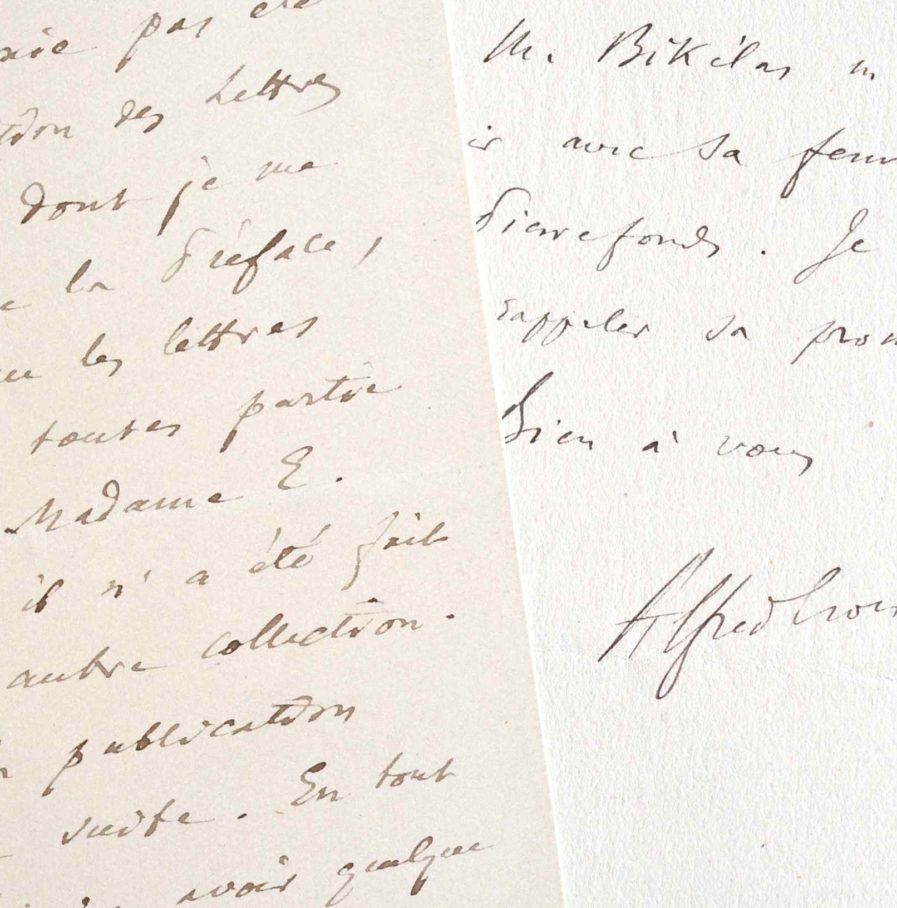 pas été
des Lettres
dont je me
la Préface,
les lettres
toutes partie
Madame E.
il n'a été fait
autre collection.
publication
suite. En tout
avoir quelque
M. Bikélas
avec sa
Pierrefonds. Je
rappeler sa
Bien à vous
Alfred